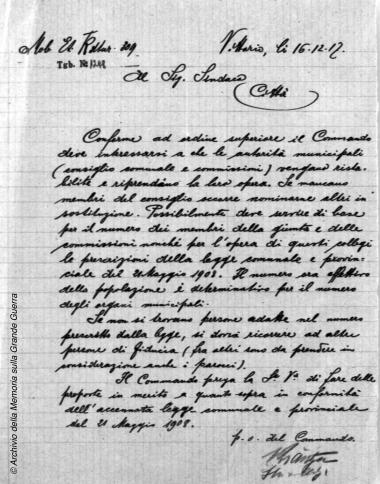 Mob. Et. Kdtur. 309
Vittorio, li 16-12-17.
Tgb. №
Al Sig. Sindaco
Città
Conforme ad ordine superiore il Commando
deve interessarsi a che le autorità municipali
(consiglio comunale e commissioni) vengano rista-
bilite e riprendano la loro opera. Se mancano
membri del consiglio occorre nominarne altri in
sostituzione. Possibilmente deve servire di base
per il numero dei membri della giunta e delle
commissioni nonchè per l'opera di questi collegi
le prescrizioni della legge comunale e provin-
ciale del 21 Maggio 1908. Il numero ora effettivo
della popolazione è determinativo per il numero
degli organi municipali.
Se non si trovano persone adatte nel numero
prescritto dalla legge, si dovrà ricorrere ad altre
persone di fiducia (fra altri sono da prendere in
considerazione anche i parroci).
Il Commando prega la S. V. di fare delle
proposte in merito a quanto sopra in conformità
dell'accennata legge comunale e provinciale
del 21 Maggio 1908.
p. o. del Commando.
© Archivio della Memoria sulla Grande Guerra